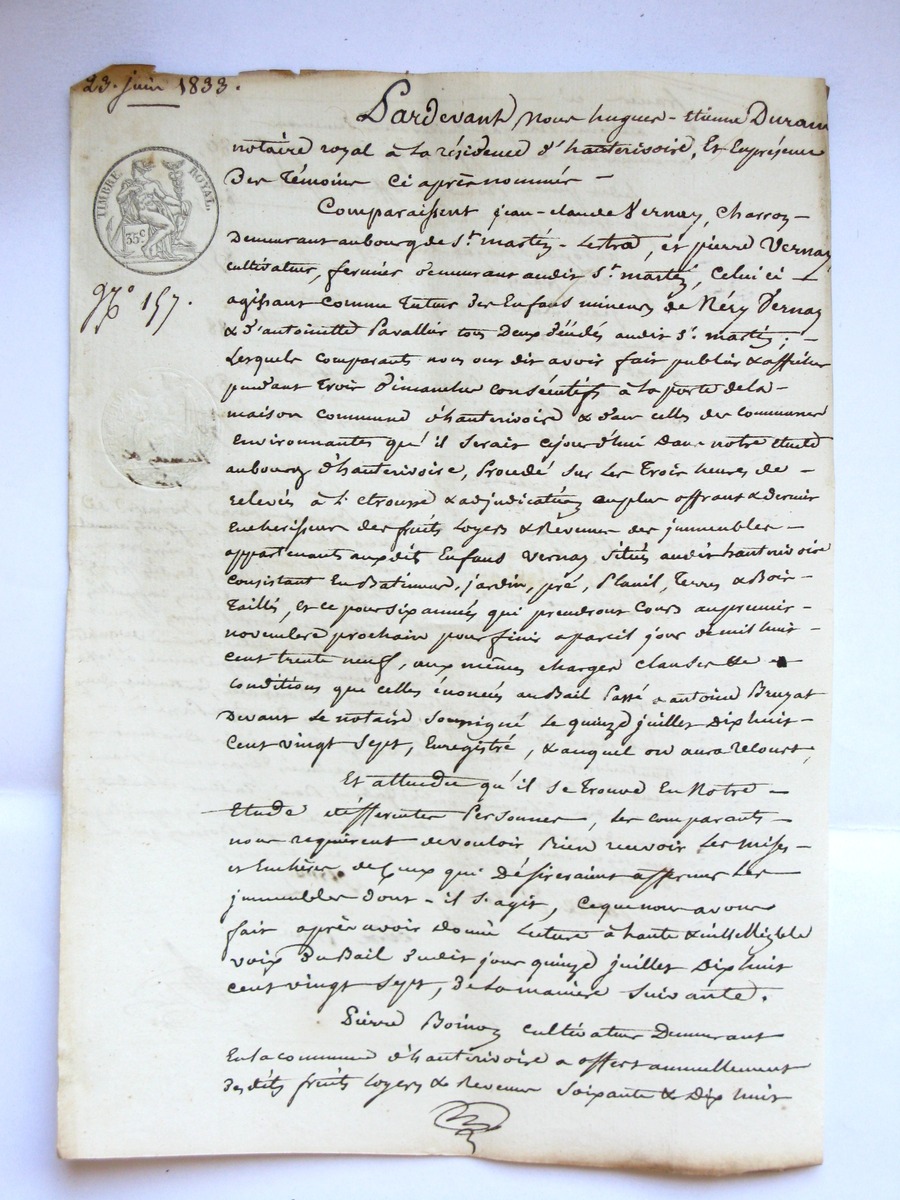 23. juin 1833.
Pardevant Nous hugues-etienne Duran
notaire royal à la résidence d'hauterivoire, Et Enprésence
Des Témoins Ci après nommés -
TIMBRE ROYAL.
35c
Comparaissent jean-claude Vernay, Charron -
Demeurant aubourg de St. martin-Lestra, et pierre Vernay
cultivateur, fermier demeurant audit St. martin, Celui ci -
No 157.
agissant comme tuteur des Enfans mineurs de Néry Vernay
& d'antoinette Pavallier tous Deux décédés audit St. martin;
Lesquels comparants nous ont dit avoir fait publier & afficher
pendant Trois Dimanches consécutifs à la porte dela -
maison commune d'hauterivoire & Sur celles des communes
Environnantes qu'il serait cejourd'hui Dans notre étude
aubourg d'hauterivoire, Procédé sur Les Trois heures de -
relevée à L'étrousse & adjudication auplus offrant & dernier
Enchérisseur des fruits loyers & Revenus des immeubles -
appartenants auxdits Enfans Vernay situés audit hauterivoire
Consistant En Batiment, jardin, pré, Terres & Bois -
Taillis, et ce pour six années qui prendront Cours aupremier -
novembre prochain pour finir apareil jour demil huit -
cent trente neuf, aux mêmes charges clauses &
conditions que celles énoncées au Bail Passé a antoine Bruyat
Devant Le notaire soussigné Le quinze juillet Dix huit -
Cent vingt sept, Enregistré, & auquel on aura recours;
Et attendu qu'il se Trouve En Notre -
Etude différentes Personnes, Les comparants -
nous requièrent de vouloir Bien recevoir Les mises -
et Enchères de Ceux qui Désireraient affermer Les
immeubles dont-il s'agit, Ceque nous avons
fait après avoir donné Lecture à haute & intelligible
voix du Bail dudit jour quinze juillet Dix huit
cent vingt sept, de la manière suivante.
Pierre Boinoy cultivateur Demeurant
En la commune d'hauterivoire a offert annuellement
desdits fruits loyers & Revenus Soixante & Dix huit